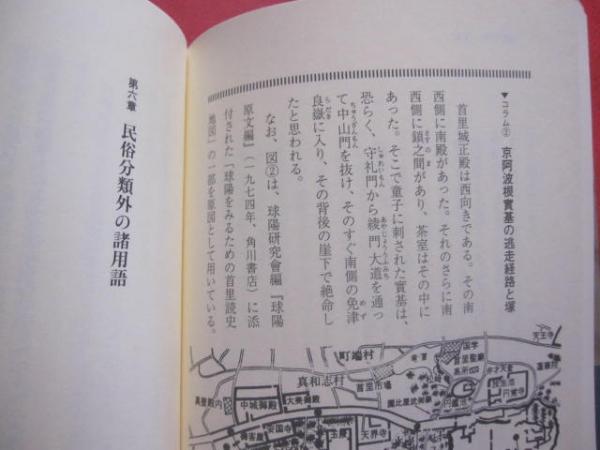 ▼コラム② 京阿波根實基の逃走経路と塚
首里城正殿は西向きである。その南
西側に南殿があった。それのさらに南
西側に鎖之間があり、茶室はその中に
あった。そこで童子に刺された實基は、
恐らく、守礼門から綾門大道を通っ
て中山門を抜け、そのすぐ南側の免津
良嶽に入り、その背後の崖下で絶命し
たと思われる。
なお、図②は、球陽研究會編『球陽
原文編』(一九七四年、角川書店)に添
付された「球陽をみるための首里読史
地図」の一部を原図として用いている。
町端村
真和志村
首里市場
中城御殿
大美御殿
安国寺
天界寺
国学
首里聖廟
天王寺
弁才天堂
円覚寺
第六章 民俗分類外の諸用語